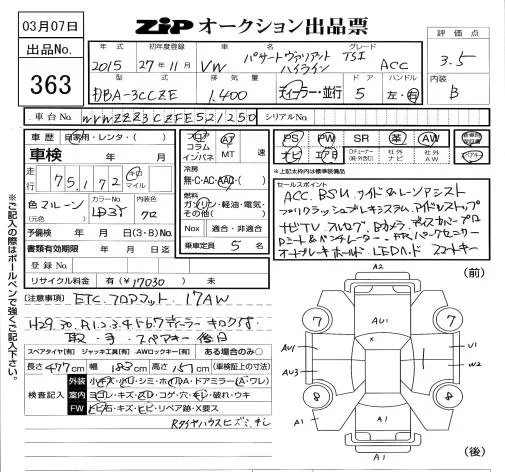 03月07日
出品No.
363
ZIP オークション出品票
評価点
3.5
内装
B
年式 初年度登録 車名 グレード
2015 27年11月 VW パサートヴァリアント TSI ハイライン ACC
型式 排気量 ドア ハンドル
DBA-3CCZE 1,400 ディーラー・並行 5 左・右
車台No. WVWZZZ3CZFE521250 シリアルNo.
車歴 自家用・レンタ・( )
車検 年 月
走行 75,172 キロ マイル
色 マルーン カラーNo. 内装色 クロ
(元色)
予備検 年 月 日(3・8)No.
書類有効期限 年 月 日迄
登録No.
リサイクル料金 有(¥17030) 未
フロア コラム インパネ
AT MT 速
冷房
無・C・AC・AAC・( )
燃料
ガソリン・軽油・電気・その他( )
Nox 適合・非適合
乗車定員 5 名
PS PW SR 革 AW
ナビ エアB
社外 ナビ 社外 AW
スペアキー
※上記太枠内は標準装備品
セールスポイント
ACC BSM サイド&レーンアシスト
プリクラッシュブレーキシステム アイドルストップ
ナビTV フルセグ Bカメラ ディスカバープロ
Dシート&ベンチレーター FRパークセンサー
オートブレーキホールド LEDハイド スマートキー
(注意事項) ETC フロアマット 17AW
H29.30.R1.2.3.4.5.6.7ディーラーキロク付
取・手・スペアキー後日
スペアタイヤ[有] ジャッキ工具[有] AWロックキー[有] ある場合のみ○
長さ 477cm 幅 183cm 高さ 151cm (車検証上の寸法)
検査記入
外装 小キズ・小U・シミ・ホイルA・ドアミラー(A・ワレ)
室内 ヨゴレ・キズ・スレ・コゲ・穴・キレ・破れ・ウキ
FW ヒ石・キズ・ヒビ・リペア跡・X要ス
Rタイヤハウスヒズミ、キレ
※ご記入の際はボールペンで強くご記入下さい。
(前)
A2
AU1
7 7
AU1 U1
AU3 1 W2
8 8
A1 A1 A1
(後)